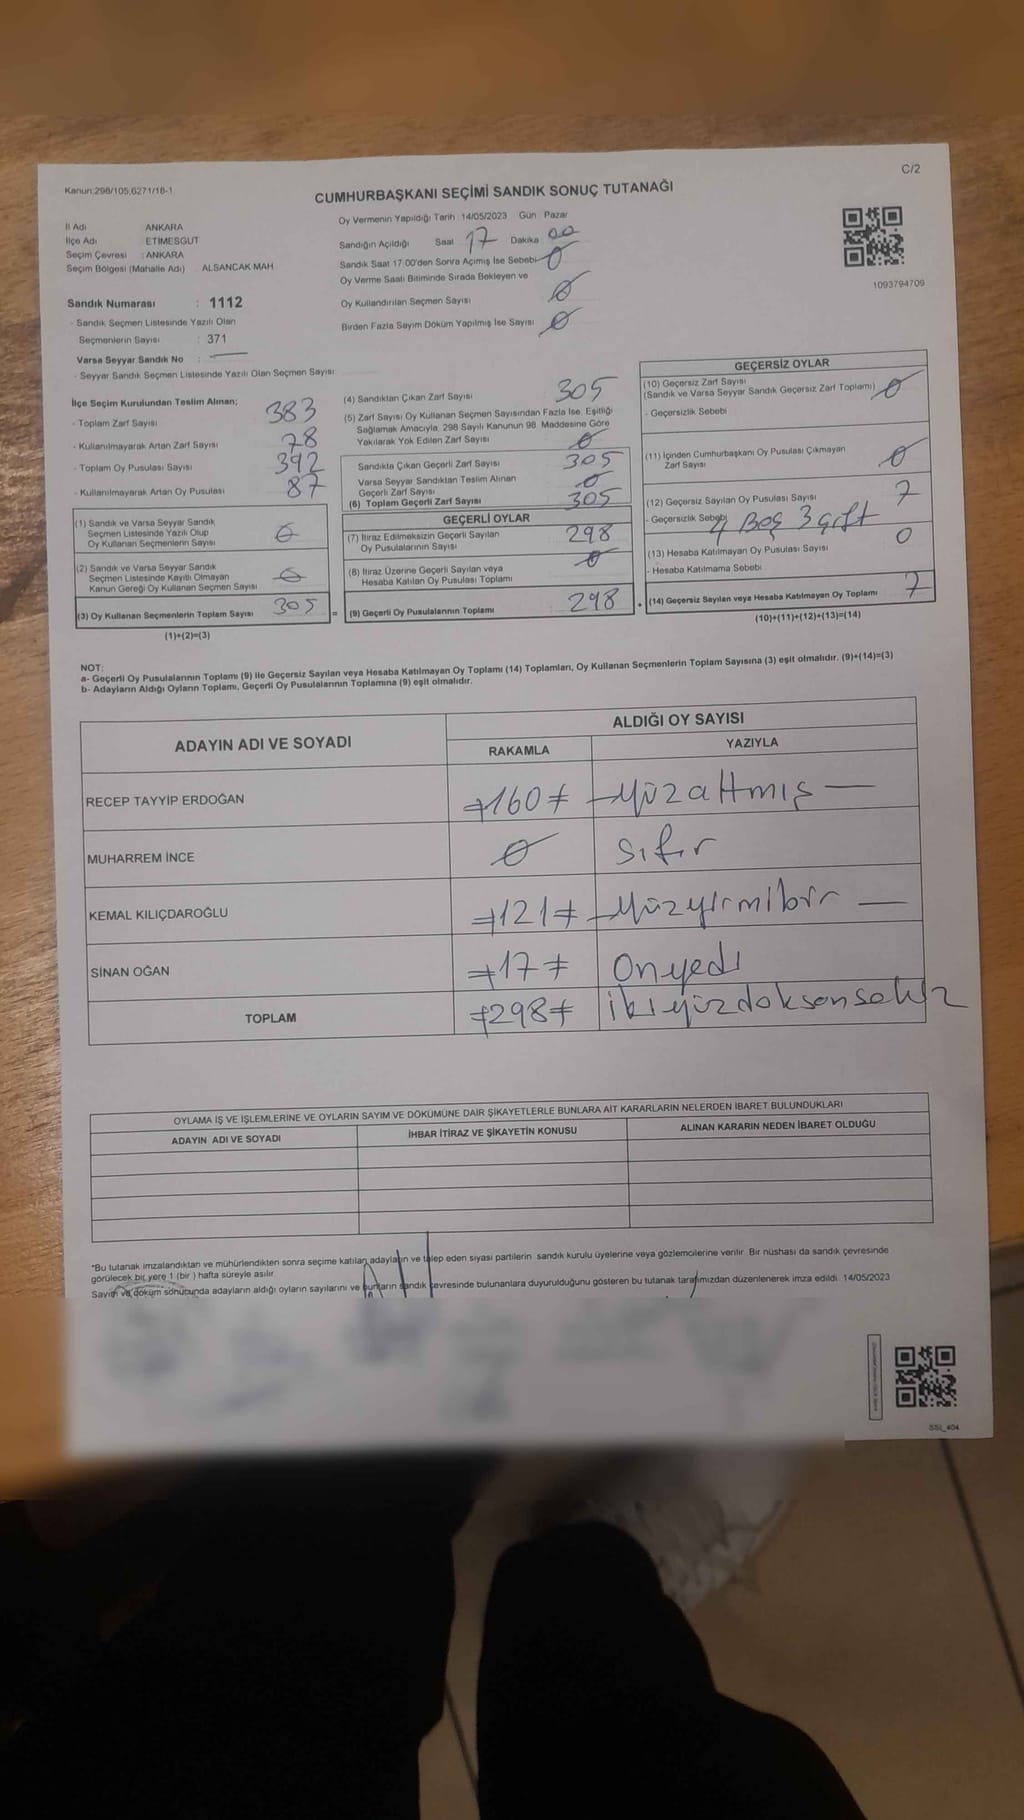 C/2
Kanun:298/105;6271/18-1
CUMHURBAŞKANI SEÇİMİ SANDIK SONUÇ TUTANAĞI
İl Adı ANKARA
İlçe Adı ETİMESGUT
Seçim Çevresi : ANKARA
Seçim Bölgesi (Mahalle Adı) ALSANCAK MAH
Sandık Numarası : 1112
- Sandık Seçmen Listesinde Yazılı Olan
Seçmenlerin Sayısı : 371
Varsa Seyyar Sandık No :
- Seyyar Sandık Seçmen Listesinde Yazılı Olan Seçmen Sayısı:
Oy Vermenin Yapıldığı Tarih 14/05/2023 Gün Pazar
Sandığın Açıldığı Saat 17 Dakika 00
Sandık Saat 17:00'den Sonra Açımış İse Sebebi 0
Oy Verme Saati Bitiminde Sırada Bekleyen ve
Oy Kullandırılan Seçmen Sayısı 0
Birden Fazla Sayım Döküm Yapılmış İse Sayısı 0
1093794709
İlçe Seçim Kurulundan Teslim Alınan;
- Toplam Zarf Sayısı 383
- Kullanılmayarak Artan Zarf Sayısı 78
- Toplam Oy Pusulası Sayısı 392
- Kullanılmayarak Artan Oy Pusulası 87
(1) Sandık ve Varsa Seyyar Sandık
Seçmen Listesinde Yazılı Olup
Oy Kullanan Seçmenlerin Sayısı 0
(2) Sandık ve Varsa Seyyar Sandık
Seçmen Listesinde Kayıtlı Olmayan
Kanun Gereği Oy Kullanan Seçmen Sayısı 0
(3) Oy Kullanan Seçmenlerin Toplam Sayısı 305 =
(1)+(2)=(3)
(4) Sandıktan Çıkan Zarf Sayısı 305
(5) Zarf Sayısı Oy Kullanan Seçmen Sayısından Fazla İse, Eşitliği
Sağlamak Amacıyla, 298 Sayılı Kanunun 98. Maddesine Göre
Yakılarak Yok Edilen Zarf Sayısı 0
Sandıkta Çıkan Geçerli Zarf Sayısı 305
Varsa Seyyar Sandıktan Teslim Alınan
Geçerli Zarf Sayısı 0
(6) Toplam Geçerli Zarf Sayısı 305
GEÇERLİ OYLAR
(7) İtiraz Edilmeksizin Geçerli Sayılan
Oy Pusulalarının Sayısı 298
(8) İtiraz Üzerine Geçerli Sayılan veya
Hesaba Katılan Oy Pusulası Toplamı 0
(9) Geçerli Oy Pusulalarının Toplamı 298 +
GEÇERSİZ OYLAR
(10) Geçersiz Zarf Sayısı
(Sandık ve Varsa Seyyar Sandık Geçersiz Zarf Toplamı) 0
- Geçersizlik Sebebi
(11) İçinden Cumhurbaşkanı Oy Pusulası Çıkmayan
Zarf Sayısı 0
(12) Geçersiz Sayılan Oy Pusulası Sayısı 7
- Geçersizlik Sebebi 4 Boş 3 çift
(13) Hesaba Katılmayan Oy Pusulası Sayısı 0
- Hesaba Katılmama Sebebi
(14) Geçersiz Sayılan veya Hesaba Katılmayan Oy Toplamı 7
(10)+(11)+(12)+(13)=(14)
NOT:
a- Geçerli Oy Pusulalarının Toplamı (9) ile Geçersiz Sayılan veya Hesaba Katılmayan Oy Toplamı (14) Toplamları, Oy Kullanan Seçmenlerin Toplam Sayısına (3) eşit olmalıdır. (9)+(14)=(3)
b- Adayların Aldığı Oyların Toplamı, Geçerli Oy Pusulalarının Toplamına (9) eşit olmalıdır.
ADAYIN ADI VE SOYADI ALDIĞI OY SAYISI
RAKAMLA YAZIYLA
RECEP TAYYİP ERDOĞAN 160 yüzaltmış
MUHARREM İNCE 0 sıfır
KEMAL KILIÇDAROĞLU 121 yüzyirmibir
SİNAN OĞAN 17 Onyedi
TOPLAM 298 ikiyüzdoksansekiz
OYLAMA İŞ VE İŞLEMLERİNE VE OYLARIN SAYIM VE DÖKÜMÜNE DAİR ŞİKAYETLERLE BUNLARA AİT KARARLARIN NELERDEN İBARET BULUNDUKLARI
ADAYIN ADI VE SOYADI İHBAR İTİRAZ VE ŞİKAYETİN KONUSU ALINAN KARARIN NEDEN İBARET OLDUĞU
*Bu tutanak imzalandıktan ve mühürlendikten sonra seçime katılan adayların ve talep eden siyasi partilerin sandık kurulu üyelerine veya gözlemcilerine verilir. Bir nüshası da sandık çevresinde
görülecek bir yere 1 (bir) hafta süreyle asılır.
Sayım ve döküm sonucunda adayların aldığı oyların sayılarını ve bunların sandık çevresinde bulunanlara duyurulduğunu gösteren bu tutanak tarafımızdan düzenlenerek imza edildi. 14/05/2023
SSI_404